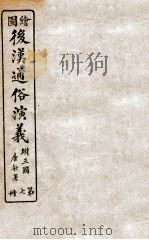 繪圖
後漢通俗演義
坿三國
唐駝署
第七冊